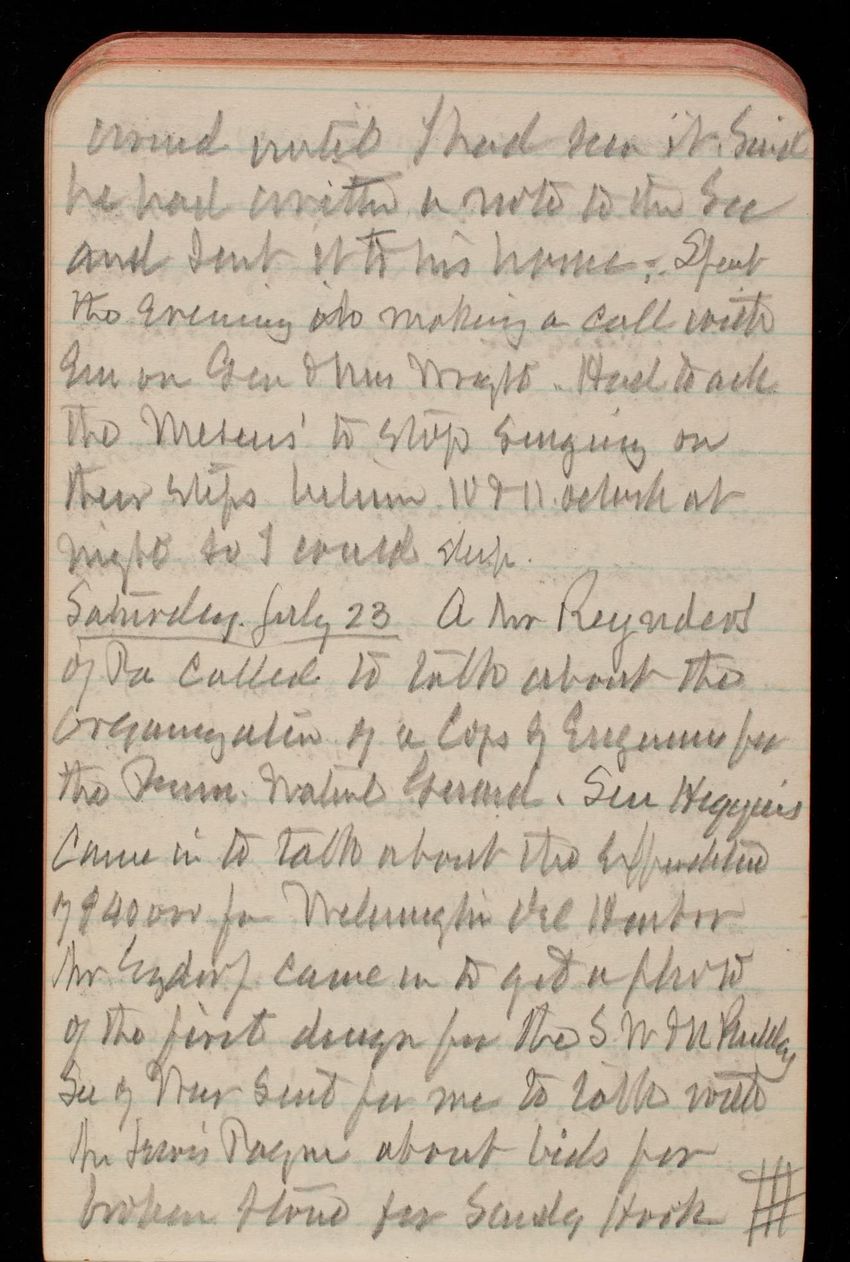 until I had seen it. Said
he had written a note to the Sec
and sent it to his home. Spent
the evening making a call with
Em on Gen & Mrs Wright. Had to ask
the to stop singing on
their steps between 10 & 11 oclock at
night so I could sleep.
Saturday. July 23 A Mr Reynders
of Pa called to talk about the
organization of a Cops of Engineers for
the Penn. National Guard. Sen Higgins
came in to talk about the expenditure
of $40000 for Wilmington Del Harbor
Mr came in to get a photo
of the first design for the S W & N Building
Sec of War sent for me to talk with
Mr Payne about bids for
broken stone for Sandy Hook